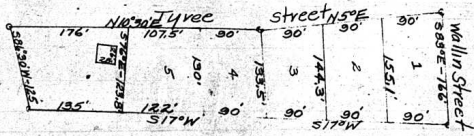 N10°30'E Tyree Street N5°E
176' 107.5' 90' 90' 90' 90'
S86°30'W-125
S76°E-129.8'
5 130' 4 133.5' 3 144.3' 2 155.1' 1
S83°E-166
Wallin Street
135' 122' 90' 90' 90' 90'
S17°W S17°W